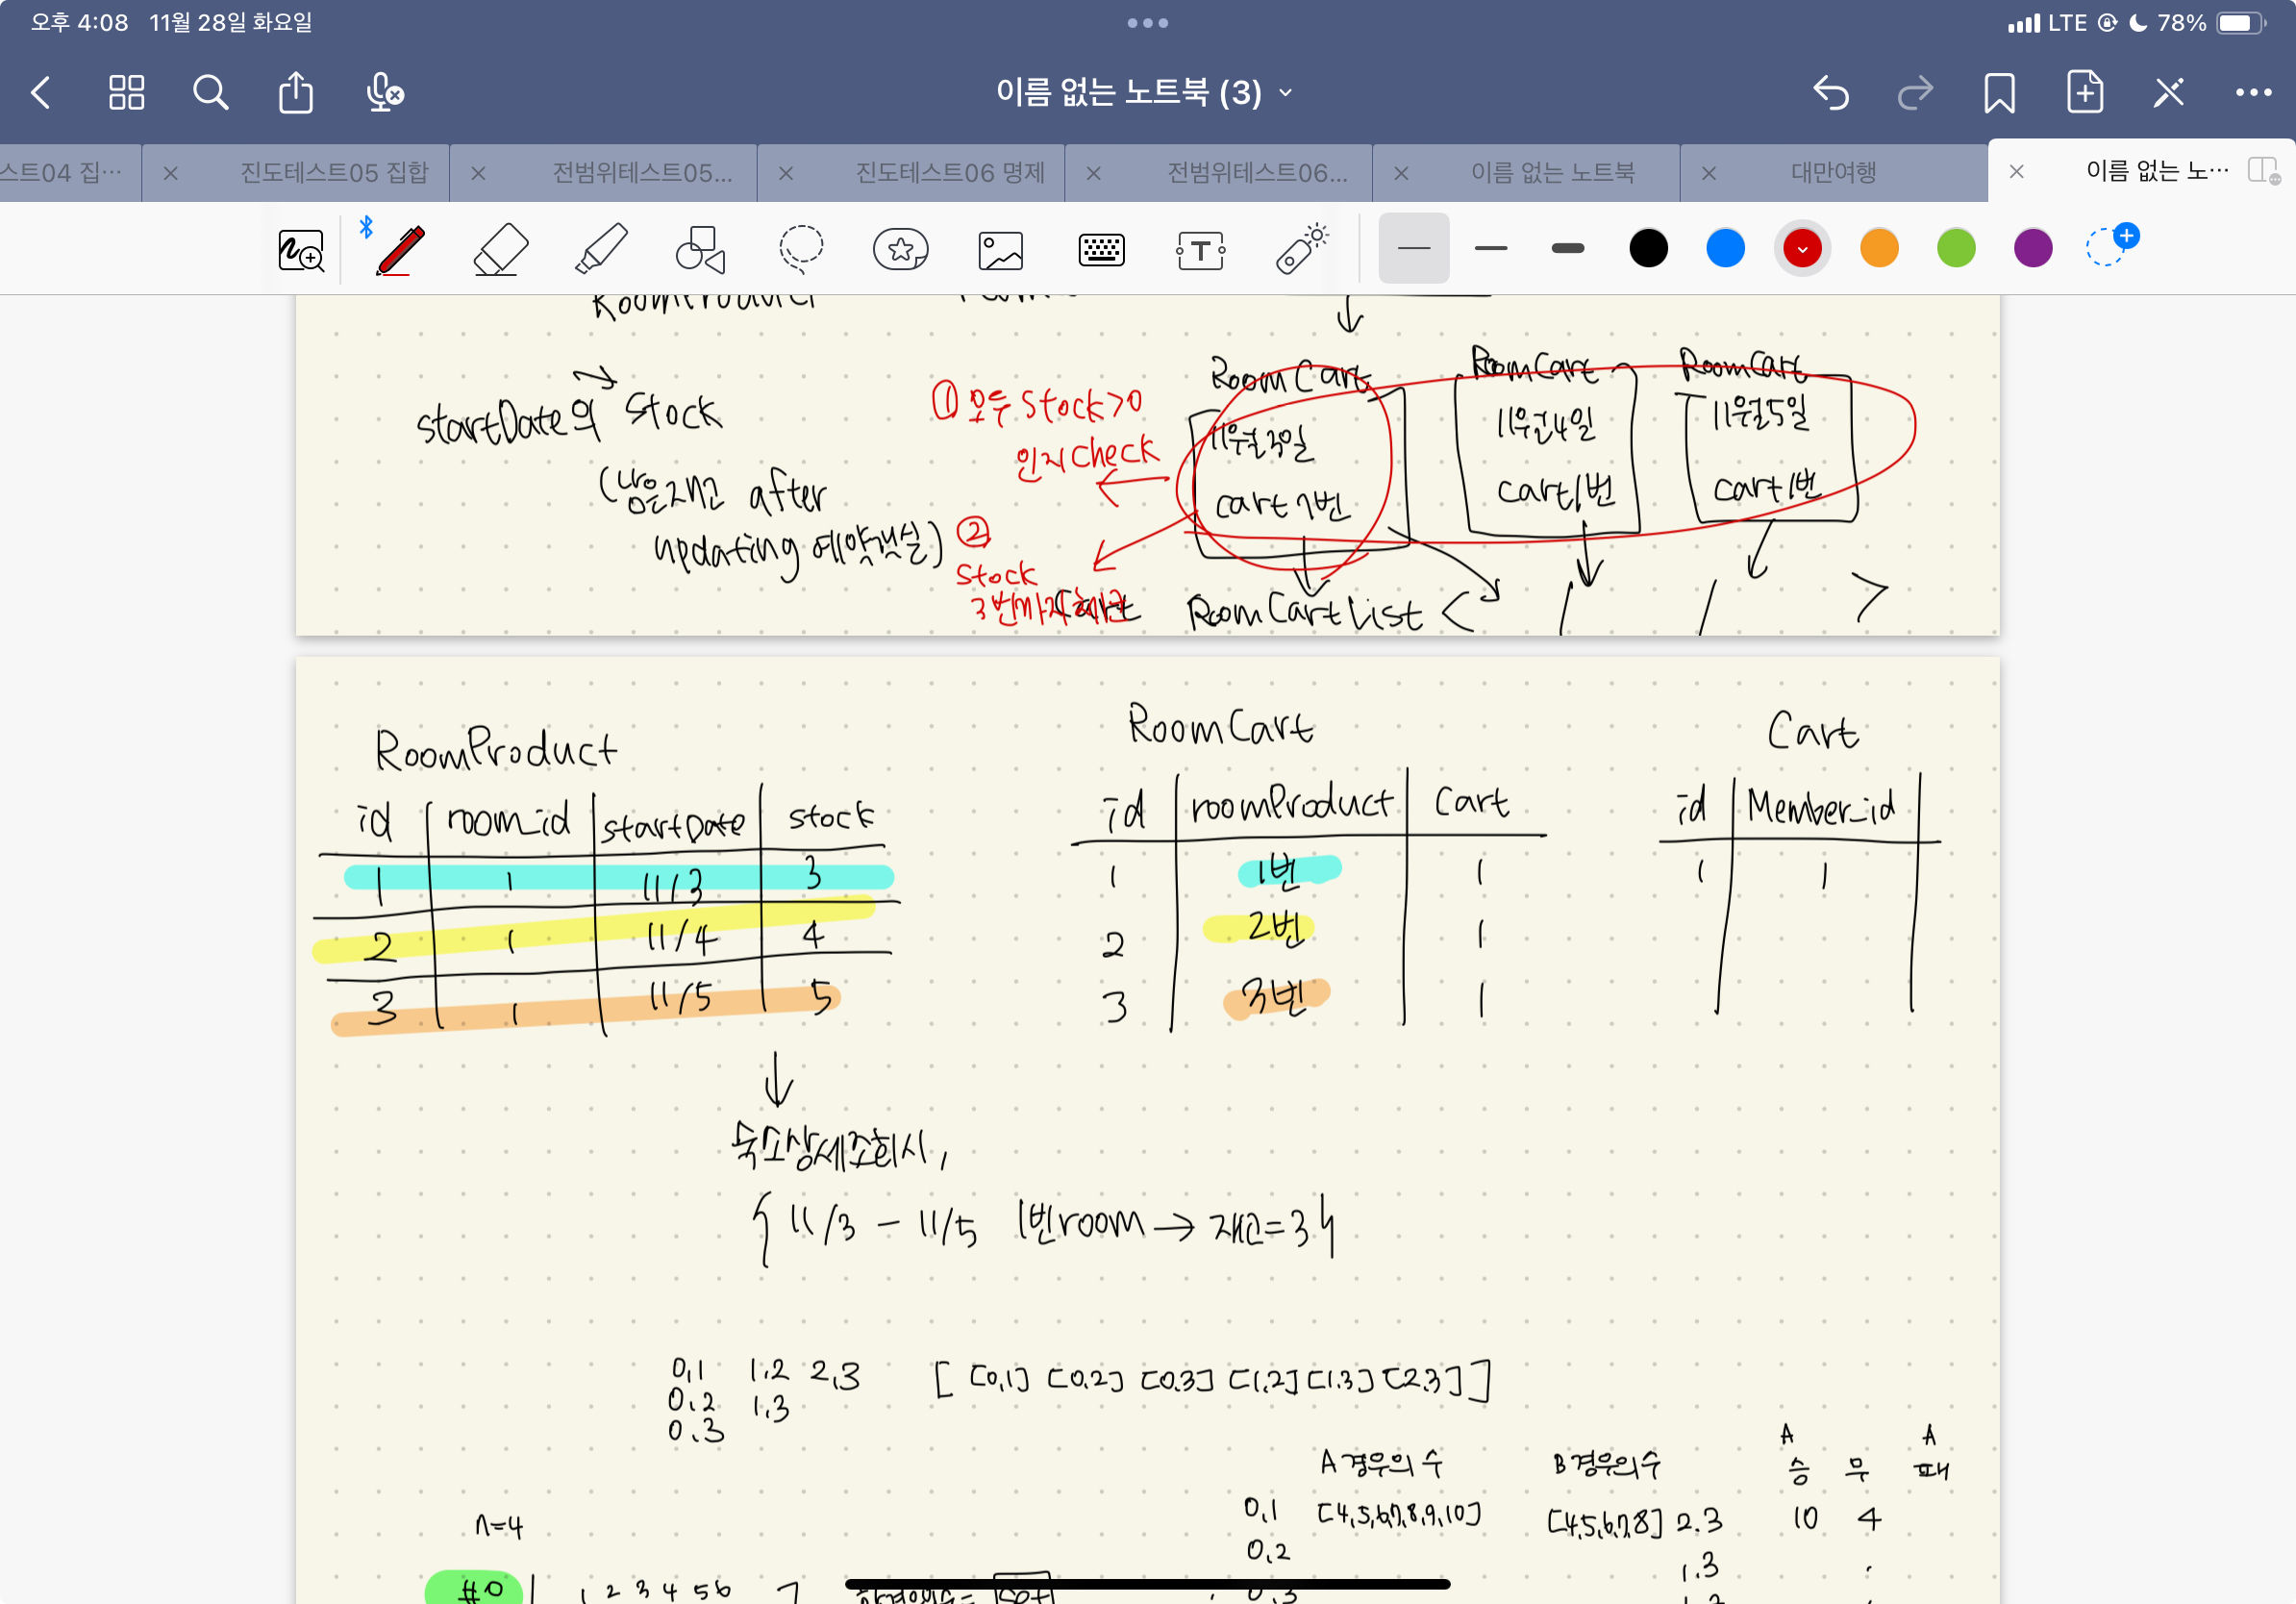 오후 4:08 11월 28일 화요일
LTE 78%
이름 없는 노트북 (3)
스트04 집…
진도테스트05 집합
전범위테스트05...
진도테스트06 명제
전범위테스트06...
이름 없는 노트북
대만여행
이름 없는 노…
RoomProduct
RoomCart RoomCart RoomCart
① 모두 stock>0
인지 check
startDate의 stock
11월3일 11월4일 11월5일
cart 1번 cart 1번 cart 1번
after
updating
②
stock
3번까지
Cart RoomCartList < / / >
RoomProduct
id room_id startDate stock
1 1 11/3 3
2 1 11/4 4
3 1 11/5 5
RoomCart
id roomProduct Cart
1 1번 1
2 2번 1
3 3번 1
Cart
id Member_id
1 1
숙소상세조회시,
{ 11/3 - 11/5 1번room → 재고=3}
0,1 1.2 2,3
0.2 1.3
0.3
[ [0,1] [0.2] [0.3] [1,2] [1.3] [2.3] ]
A 경우의 수 B 경우의 수
A A
승 무 패
0,1 [4,5,6,7,8,9,10] [4,5,6,7,8] 2.3 10 4
0,2 1.3
n=4
#0 1 2 3 4 5 6
0,3